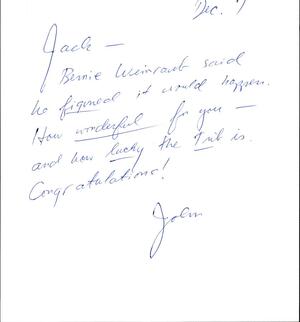 Dec. 7
Jack —
Bernie Weinraub said
he figured it would happen.
How wonderful for you —
and how lucky the Trib is.
Congratulations!
John